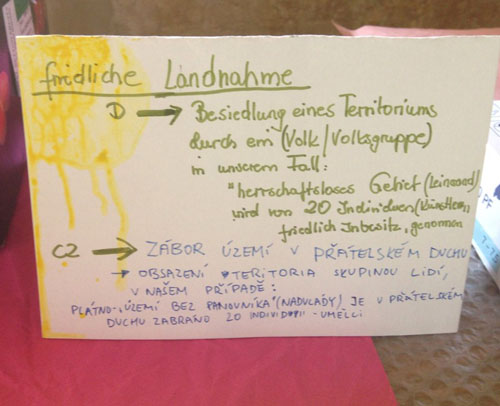 fridliche Landnahme
D → Besiedlung eines Territoriums
durch ein (Volk/Volksgruppe)
in unserem Fall:
"herrschaftsloses Gebiet (Leinwand)
wird von 20 Individuen (Künstlern)
friedlich Inbesitz, genommen
CZ → ZÁBOR ÚZEMÍ V PŘÁTELSKÉM DUCHU
→ OBSAZENÍ TERITORIA SKUPINOU LIDÍ,
V NAŠEM PŘÍPADĚ:
PLÁTNO-"ÚZEMÍ BEZ PANOVNÍKA"(NADVLÁDY) JE V PŘÁTELSKÉM
DUCHU ZABRÁNO 20 INDIVIDUI - UMĚLCI